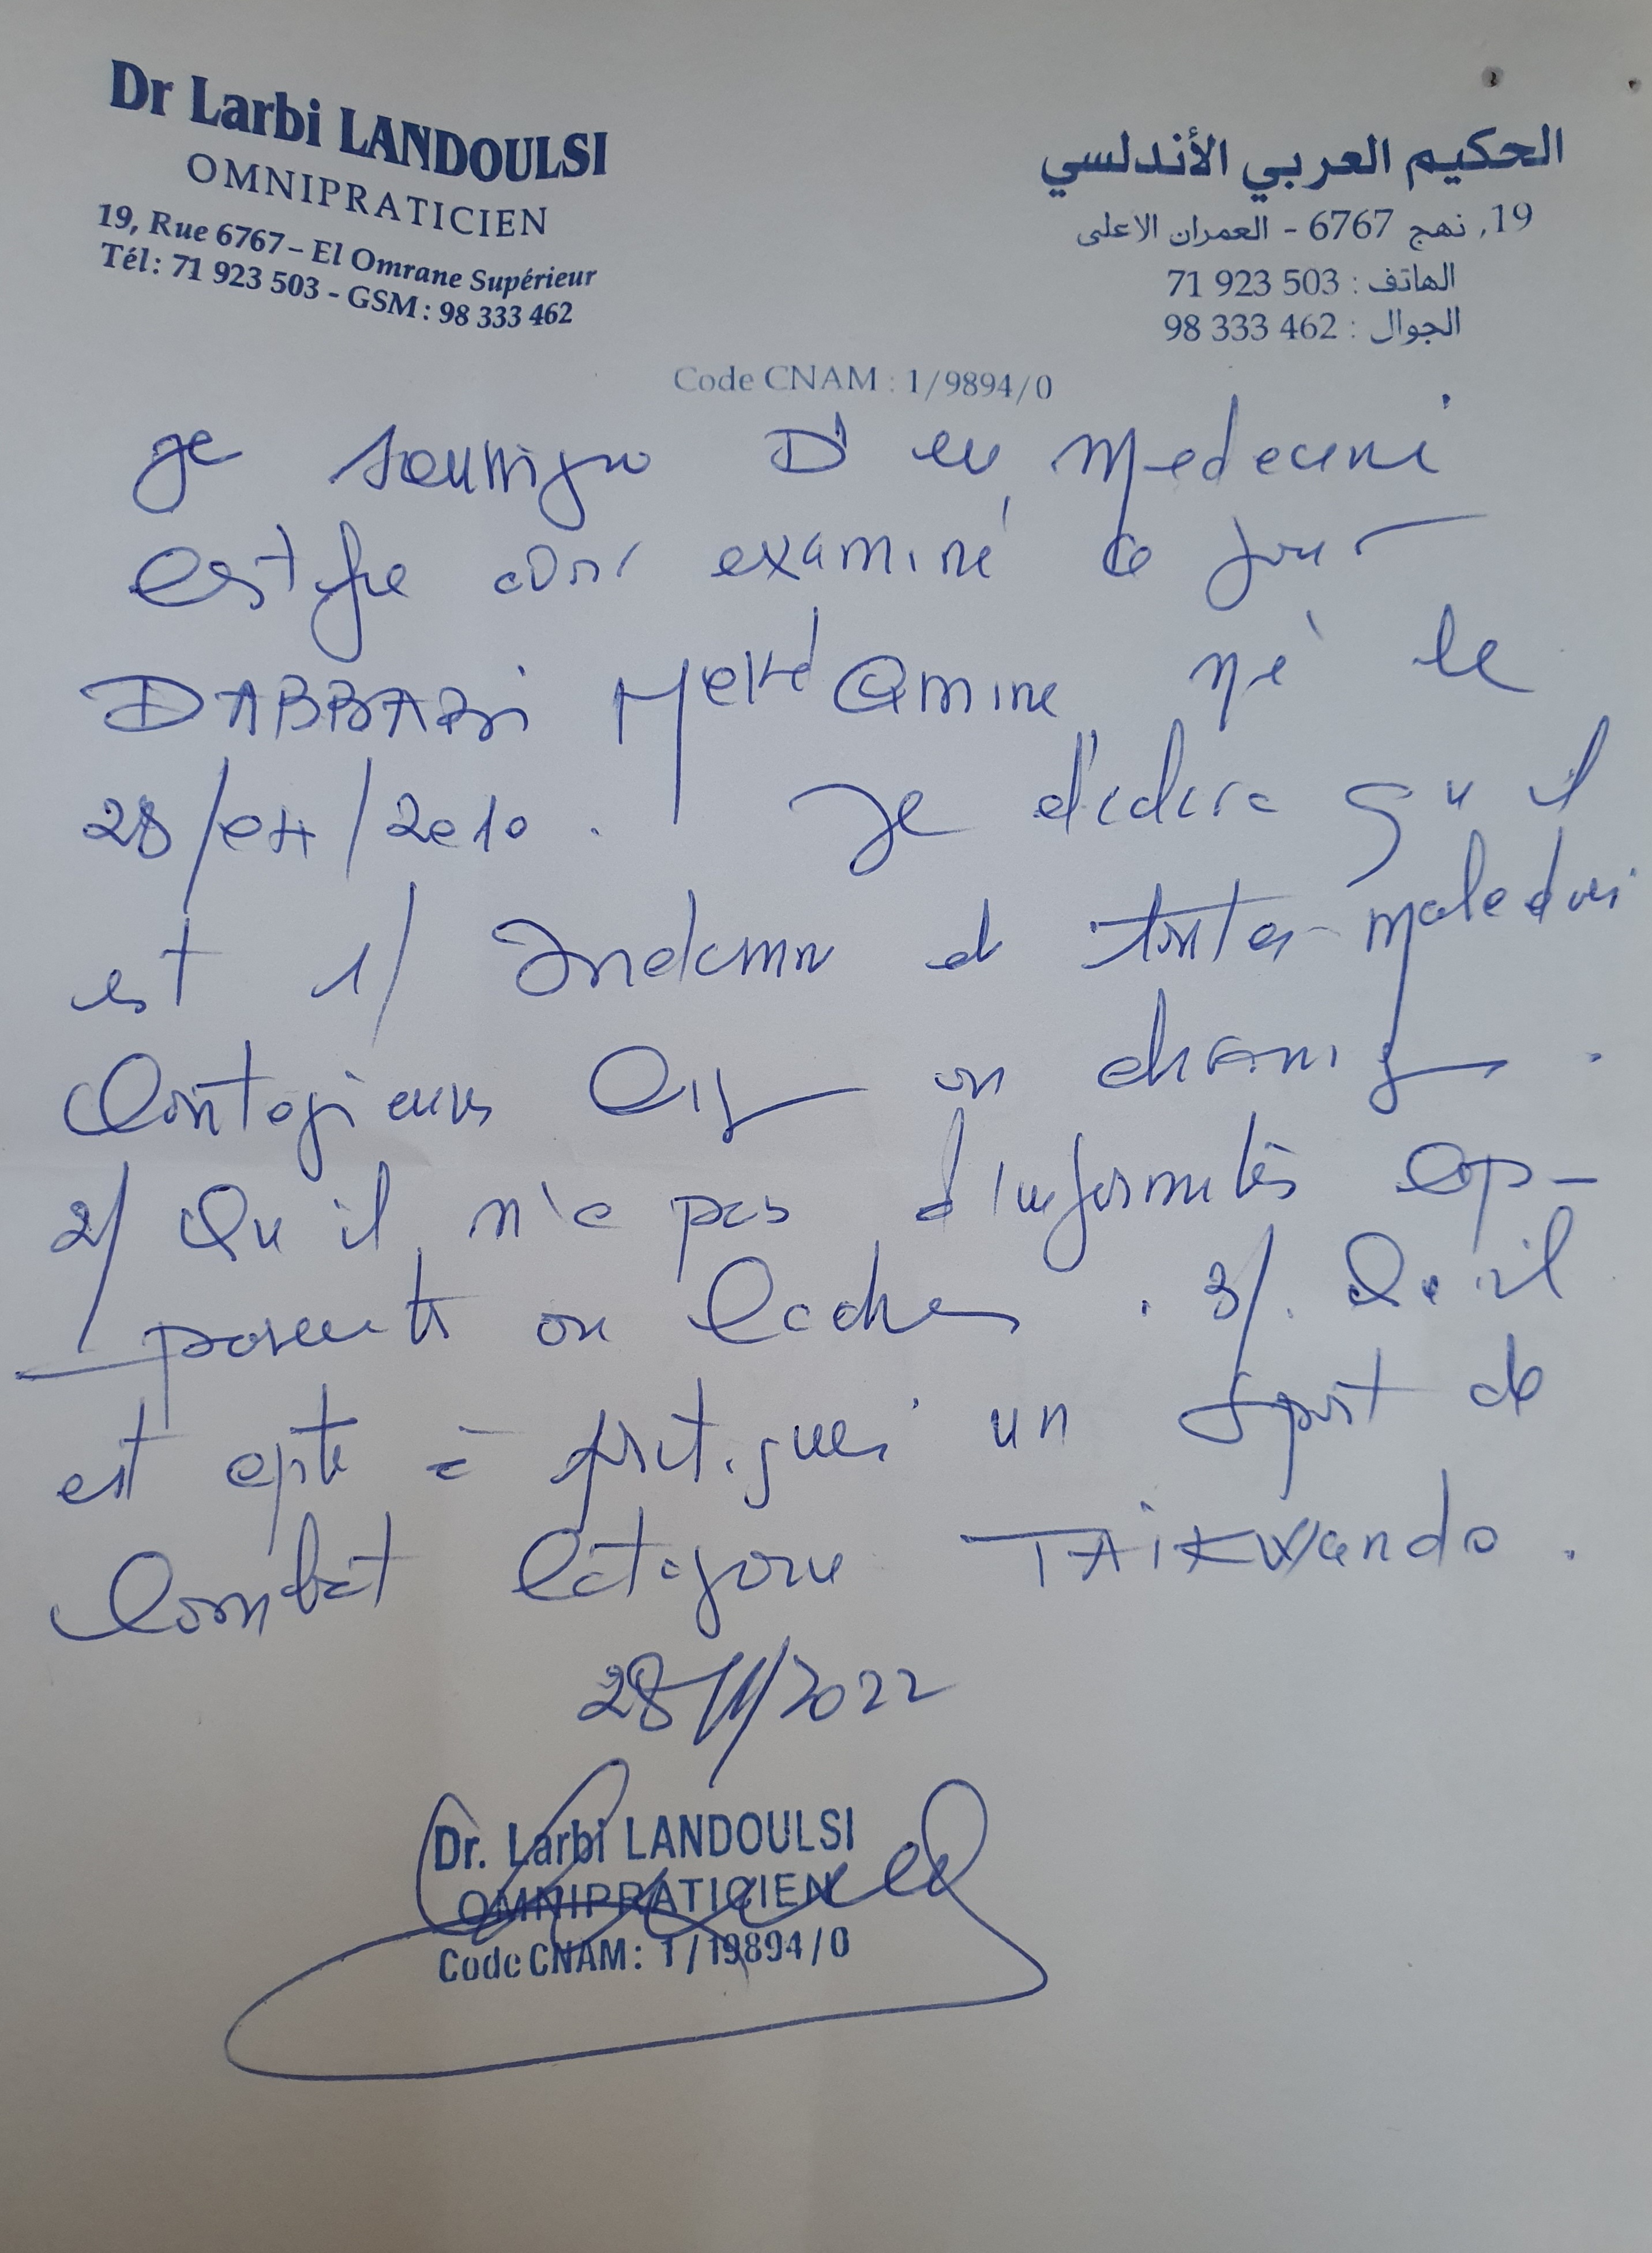 Dr Larbi LANDOULSI
OMNIPRATICIEN
19, Rue 6767 – El Omrane Supérieur
Tél : 71 923 503 - GSM : 98 333 462
الحكيم العربي الأندلسي
19, نهج 6767 - العمران الاعلى
الهاتف : 71 923 503
الجوال : 98 333 462
Code CNAM : 1/9894/0
Je soussigné Dr en Medecine
certifie avoir examiné ce jour
DABBABI Mohd Amine né le
28/04/2010. Je déclare qu'il
est 1/ Indemne de toutes maladies
Contagieuses ou chronique.
2/ Qu'il n'a pas d'infirmités ap-
parente ou cachée. 3/. Qu'il
est apte à pratiquer un sport de
Combat Catégorie TAIKWando.
28/11/2022
Dr. Larbi LANDOULSI
OMNIPRATICIEN
Code CNAM : 1/19894/0